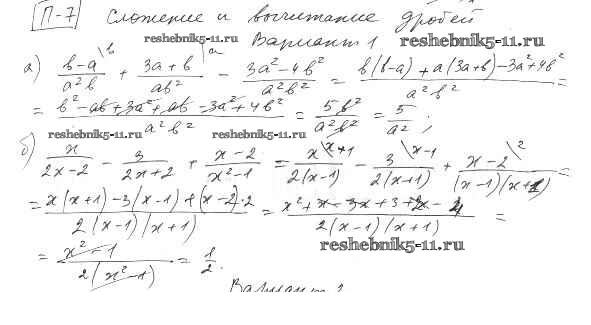 П-7 Сложение и вычитание дробей
reshebnik5-11.ru Вариант 1 reshebnik5-11.ru
а) (в-а)/(а²в) \в + (3а+в)/(ав²) \а - (3а²-4в²)/(а²в²) = (в(в-а)+а(3а+в)-3а²+4в²)/(а²в²) =
= (в²-ав+3а²+ав-3а²+4в²)/(а²в²) = (5в²)/(а²в²) = 5/а² ;
reshebnik5-11.ru reshebnik5-11.ru
б) x/(2x-2) - 3/(2x+2) + (x-2)/(x²-1) = x/(2(x-1)) \x+1 - 3/(2(x+1)) \x-1 + (x-2)/((x-1)(x+1)) \2 =
= (x(x+1)-3(x-1)+(x-2)·2)/(2(x-1)(x+1)) = (x²+x-3x+3+2x-4)/(2(x-1)(x+1)) =
reshebnik5-11.ru
= (x²-1)/(2(x²-1)) = 1/2.
Вариант